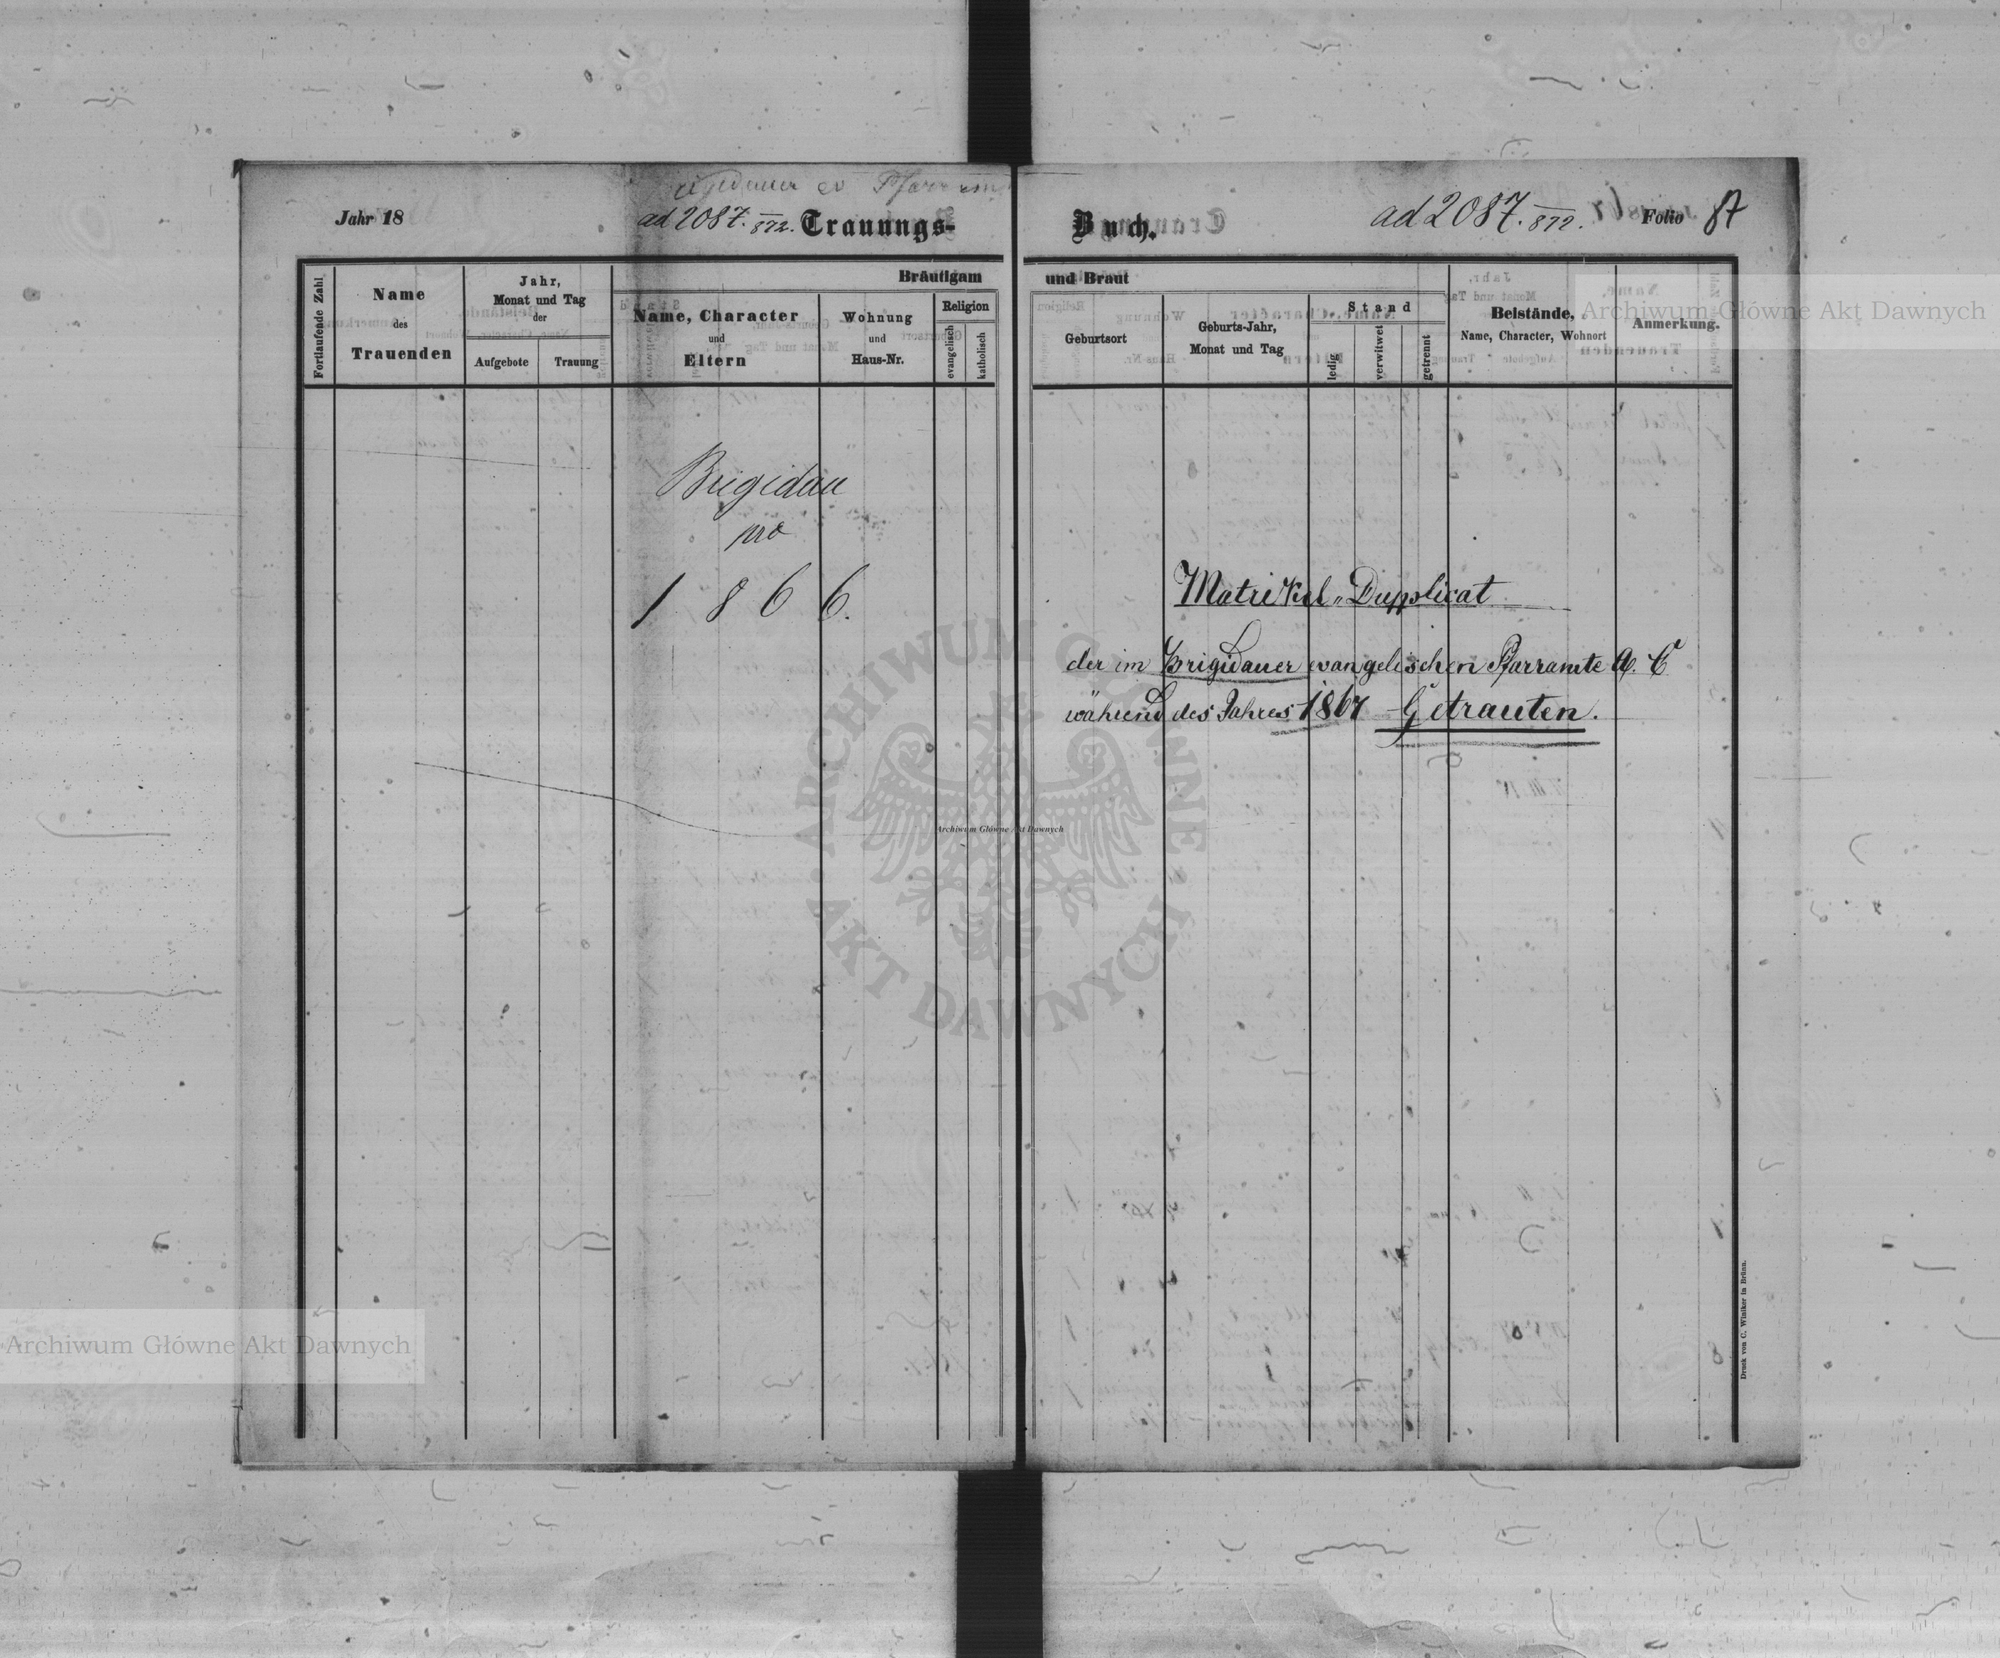 Brigidauer ev Pfarramt
Jahr 18
ad 2087. 872. Trauungs-
Fortlaufende Zahl
Name
des
Trauenden
Jahr,
Monat und Tag
der
Aufgebote
Trauung
Bräutigam
Name, Character
und
Eltern
Wohnung
und
Haus-Nr.
Religion
evangelisch
katholisch
Brigidau
pro
1866.
Buch.
ad 2087. 872.
Folio
und Braut
Geburtsort
Geburts-Jahr,
Monat und Tag
Stand
ledig
verwitwet
getrennt
Beistände,
Name, Character, Wohnort
Anmerkung.
Matrikel "Dupplicat
der im Brigidauer evangelischen Pfarramte A. C
während des Jahres 1867 Getrauten.
Druck von C. Winiker in Brünn.
Archiwum Główne Akt Dawnych
ARCHIWUM GŁÓWNE
AKT DAWNYCH
Archiwum Główne Akt Dawnych
Archiwum Główne Akt Dawnych